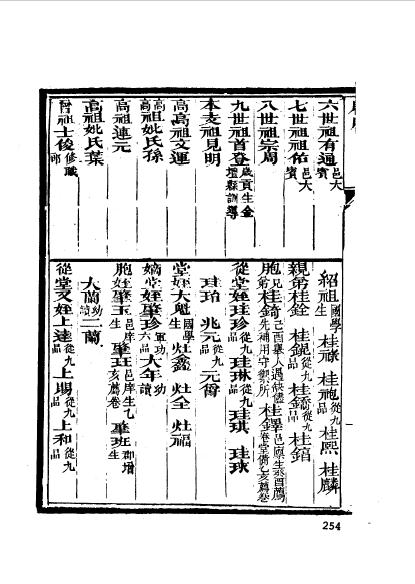 六世祖有通邑大賓
七世祖祖佑邑大賓
八世祖宗周
九世祖首登歲貢生金壇縣訓導
本支祖見明
高高祖文運
高祖妣氏孫
高祖連元
高祖妣氏葉
曾祖士俊修職郎
紹祖國學生 桂祿 桂袍從九品 桂熙 桂麟
親弟桂銓 桂錕從九品 桂鐈從九品 桂錧
胞兄弟桂錡己酉舉人遇缺儘先補用守禦所 桂鐸邑廩生癸酉薦卷堂備乙亥薦卷
從堂姪珪珍從九品 珪琳從九品 珪琪 珪球
珪珀 兆元從九品 元爵
堂姪大魁國學生 灶鑫 灶全 灶福
嫡堂姪肇珍軍功六品 大年功讀
胞姪肇玉邑庠生 肇珏邑庠生乙亥薦卷 肇班郡增生
大蘭幼讀 二蘭
從堂又姪上達從九品 上賜從九品 上和從九品
254